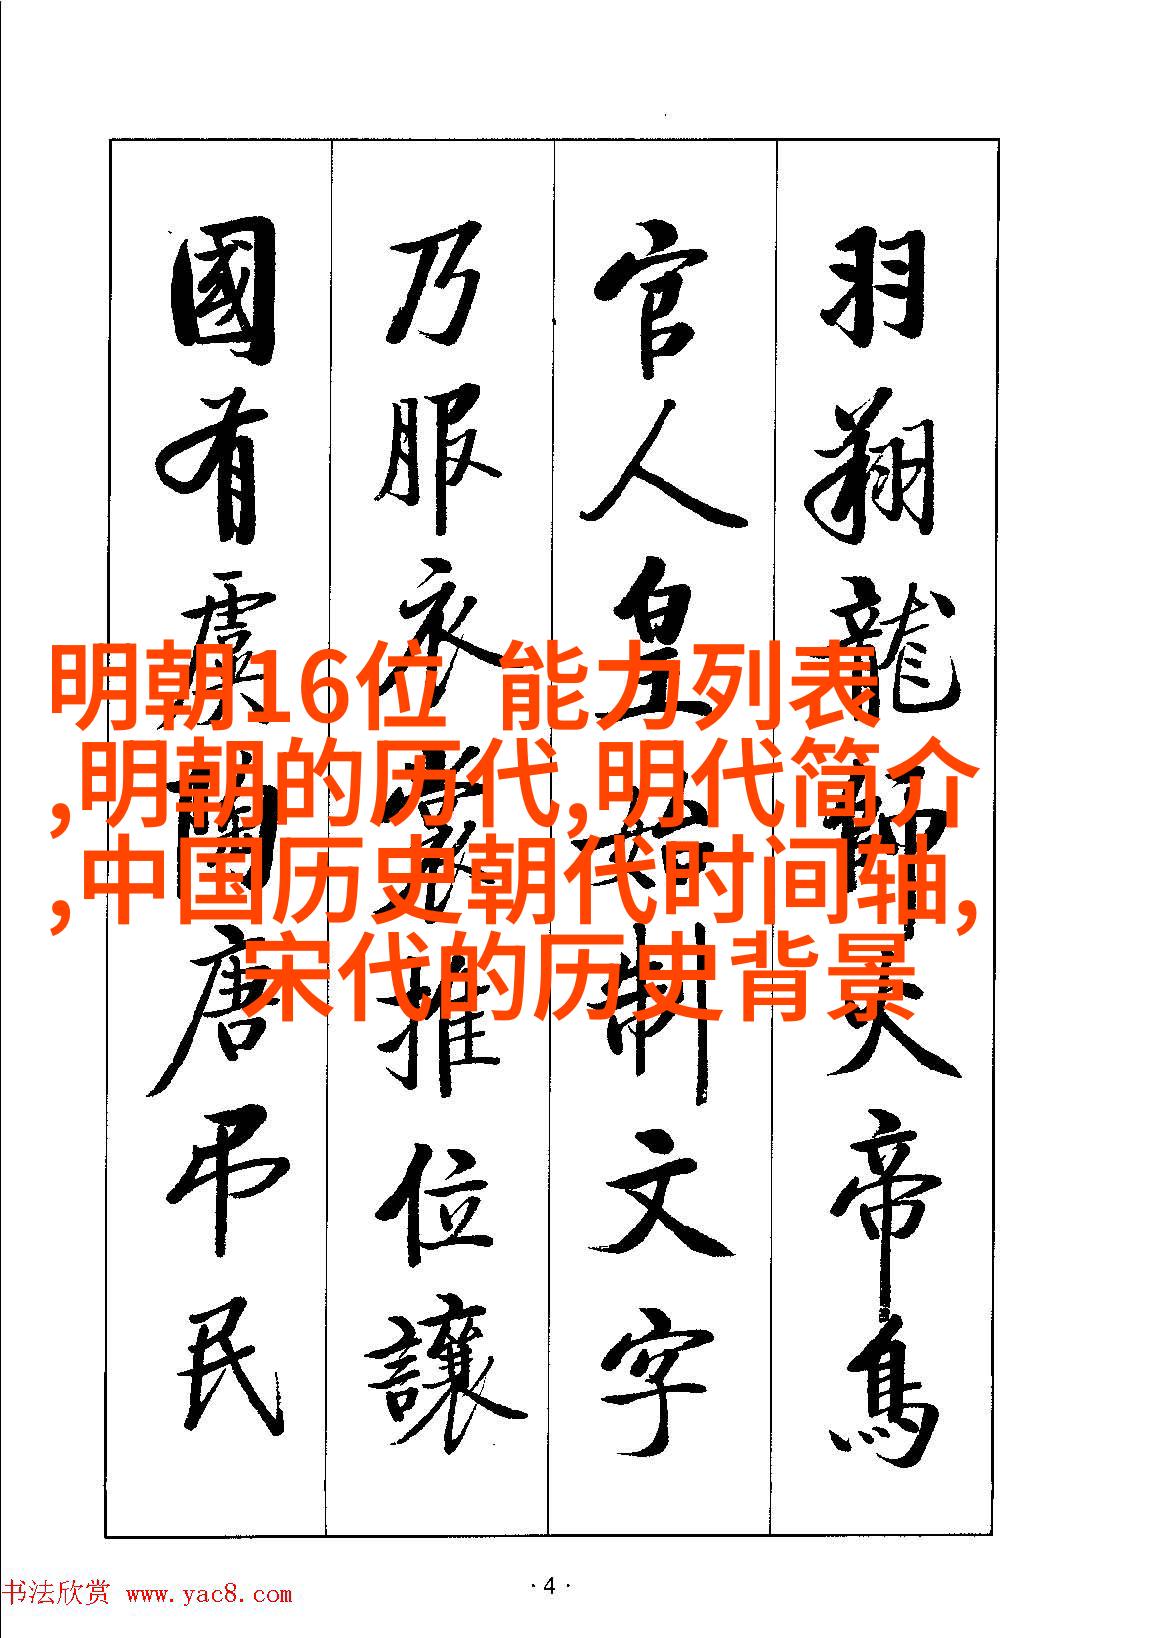 羽翔龍師火帝鳥
官人皇始制文字
乃服衣裳推位讓
國有虞陶唐吊民
明朝16位 能力列表
,明朝的历代,明代简介
,中国历史朝代时间轴,
宋代的历史背景
书法欣赏 www.yac8.com
·4·